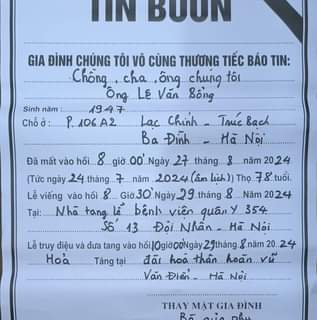 TIN BUỒN
GIA ĐÌNH CHÚNG TÔI VÔ CÙNG THƯƠNG TIẾC BÁO TIN:
Chồng, cha, ông chúng tôi
Ông Lê Văn Bồng
Sinh năm: 1947
Chỗ ở: P.106A2 Lạc Chính - Trúc Bạch
Ba Đình - Hà Nội
Đã mất vào hồi 8 giờ 00' Ngày 27 tháng 8 năm 2024
(Tức ngày 24 tháng 7 năm 2024 (âm lịch)) Thọ 78 tuổi.
Lễ viếng vào hồi 8 Giờ 30' Ngày 29 tháng 8 Năm 2024
Tại: Nhà tang lễ bệnh viện quân Y 354
Số 13 Đội Nhân - Hà Nội
Lễ truy điệu và đưa tang vào hồi 10 giờ 00 Ngày 29 tháng 8 năm 2024
Hoả Táng tại đài hoá thân hoàn vũ
Văn Điển - Hà Nội
THAY MẶT GIA ĐÌNH
Bà quả phụ